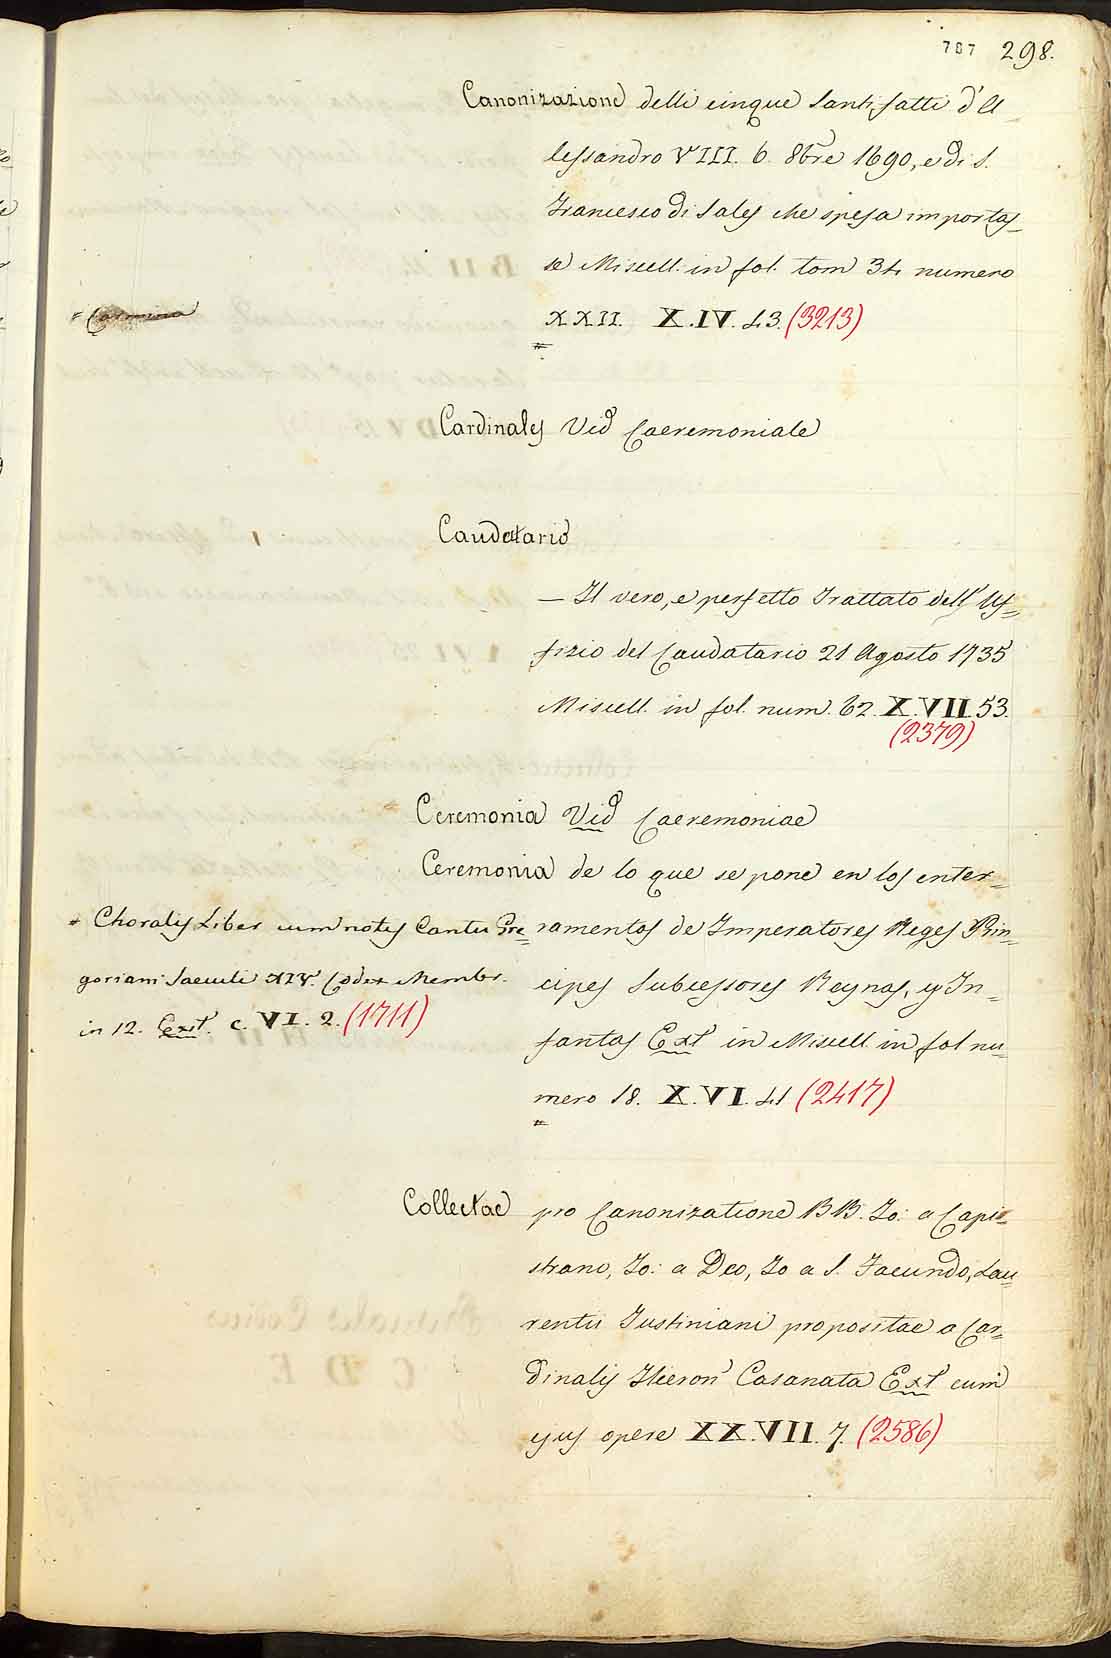 787 298.
Canonizazione delli cinque Santi fatti d'A
lessandro VIII. 6. 8bre 1690, e di S.
Francesco di Sales che spesa importas=
se Miscell. in fol. tom 34 numero
XXII. X.IV.43. (3213)
* Carmina
Cardinales Vid Caeremoniale
Caudatario
— Il vero, e perfetto Trattato dell' Uf=
fizio del Caudatario 21 Agosto 1735
Miscell. in fol. num. 62. X.VII.53.
(2379)
Ceremonia Vid Caeremoniae
Ceremonia de lo que se pone en los enter=
ramentos de Imperatores Reges Prin=
cipes Subcessores Reynas, y In=
fantas Ext in Miscell. in fol nu=
mero 18. X.VI.41 (2417)
* Choralis Liber cum notis Cantu Gre=
goriani Saeculi XIV. Codex Membr.
in 12. Exst. c. VI. 2. (1711)
Collectae pro Canonizatione BB. Jo: a Capi=
strano, Jo: a Deo, Jo a S. Facundo, Lau=
rentii Justiniani propositae a Car=
dinalis Hieron Casanata Ext cum
ejus opere XX.VII.7. (2586)